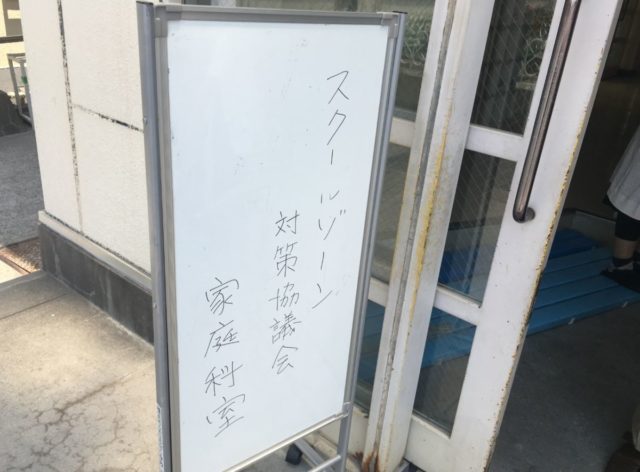 スクールゾーン
対策協議会
家庭科室